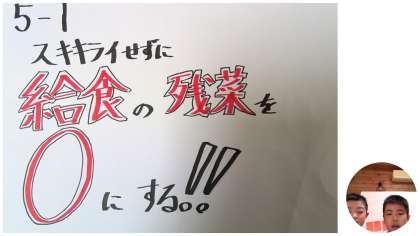 5-1
スキキライせずに
給食の残菜を
0にする!!